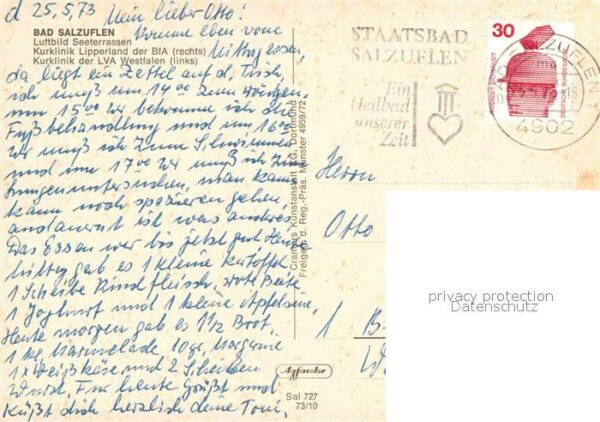 d 25.5.73 Mein lieber Otto!
BAD SALZUFLEN
Luftbild Seeterrassen
Kurklinik Lipperland der BfA (rechts)
Kurklinik der LVA Westfalen (links)
Komme eben vom
Mittagessen,
da liegt ein Zettel auf d. Tisch,
ich muß um 14 00 zum
um 15 00 Uhr bekomme ich die
Fußbehandlung und um 16 00
Uhr muß ich zum Schwimmen
und um 17 00 Uhr muß ich zur
man kann
kaum noch spazieren gehen
ist was anderes
Das Essen war bis jetzt gut. Heute
Mittag gab es 1 kleine Kartoffel
1 Scheibe Rindfleisch, rote Beete
1 Joghurt und 1 kleine Apfelsine,
Heute morgen gab es 1 1/2 Brot,
1 kl. Marmelade 10 gr. Margarine
1 x Weißkäse und 2 Scheiben
Wurst. Für heute Grüßt und
Küßt dich herzlich deine Toni.
Cramers Kunstanstalt KG, Dortmund
Freigeg. d. Reg.-Präs. Münster 4959/72
Agfacolor
Sal 727
73/10
STAATSBAD
SALZUFLEN
Ein
Heilbad
unserer
Zeit
30
DEUTSCHE BUNDESPOST
BAD SALZUFLEN 1
ma
4902
Herrn
Otto
1 B
privacy protection
Datenschutz